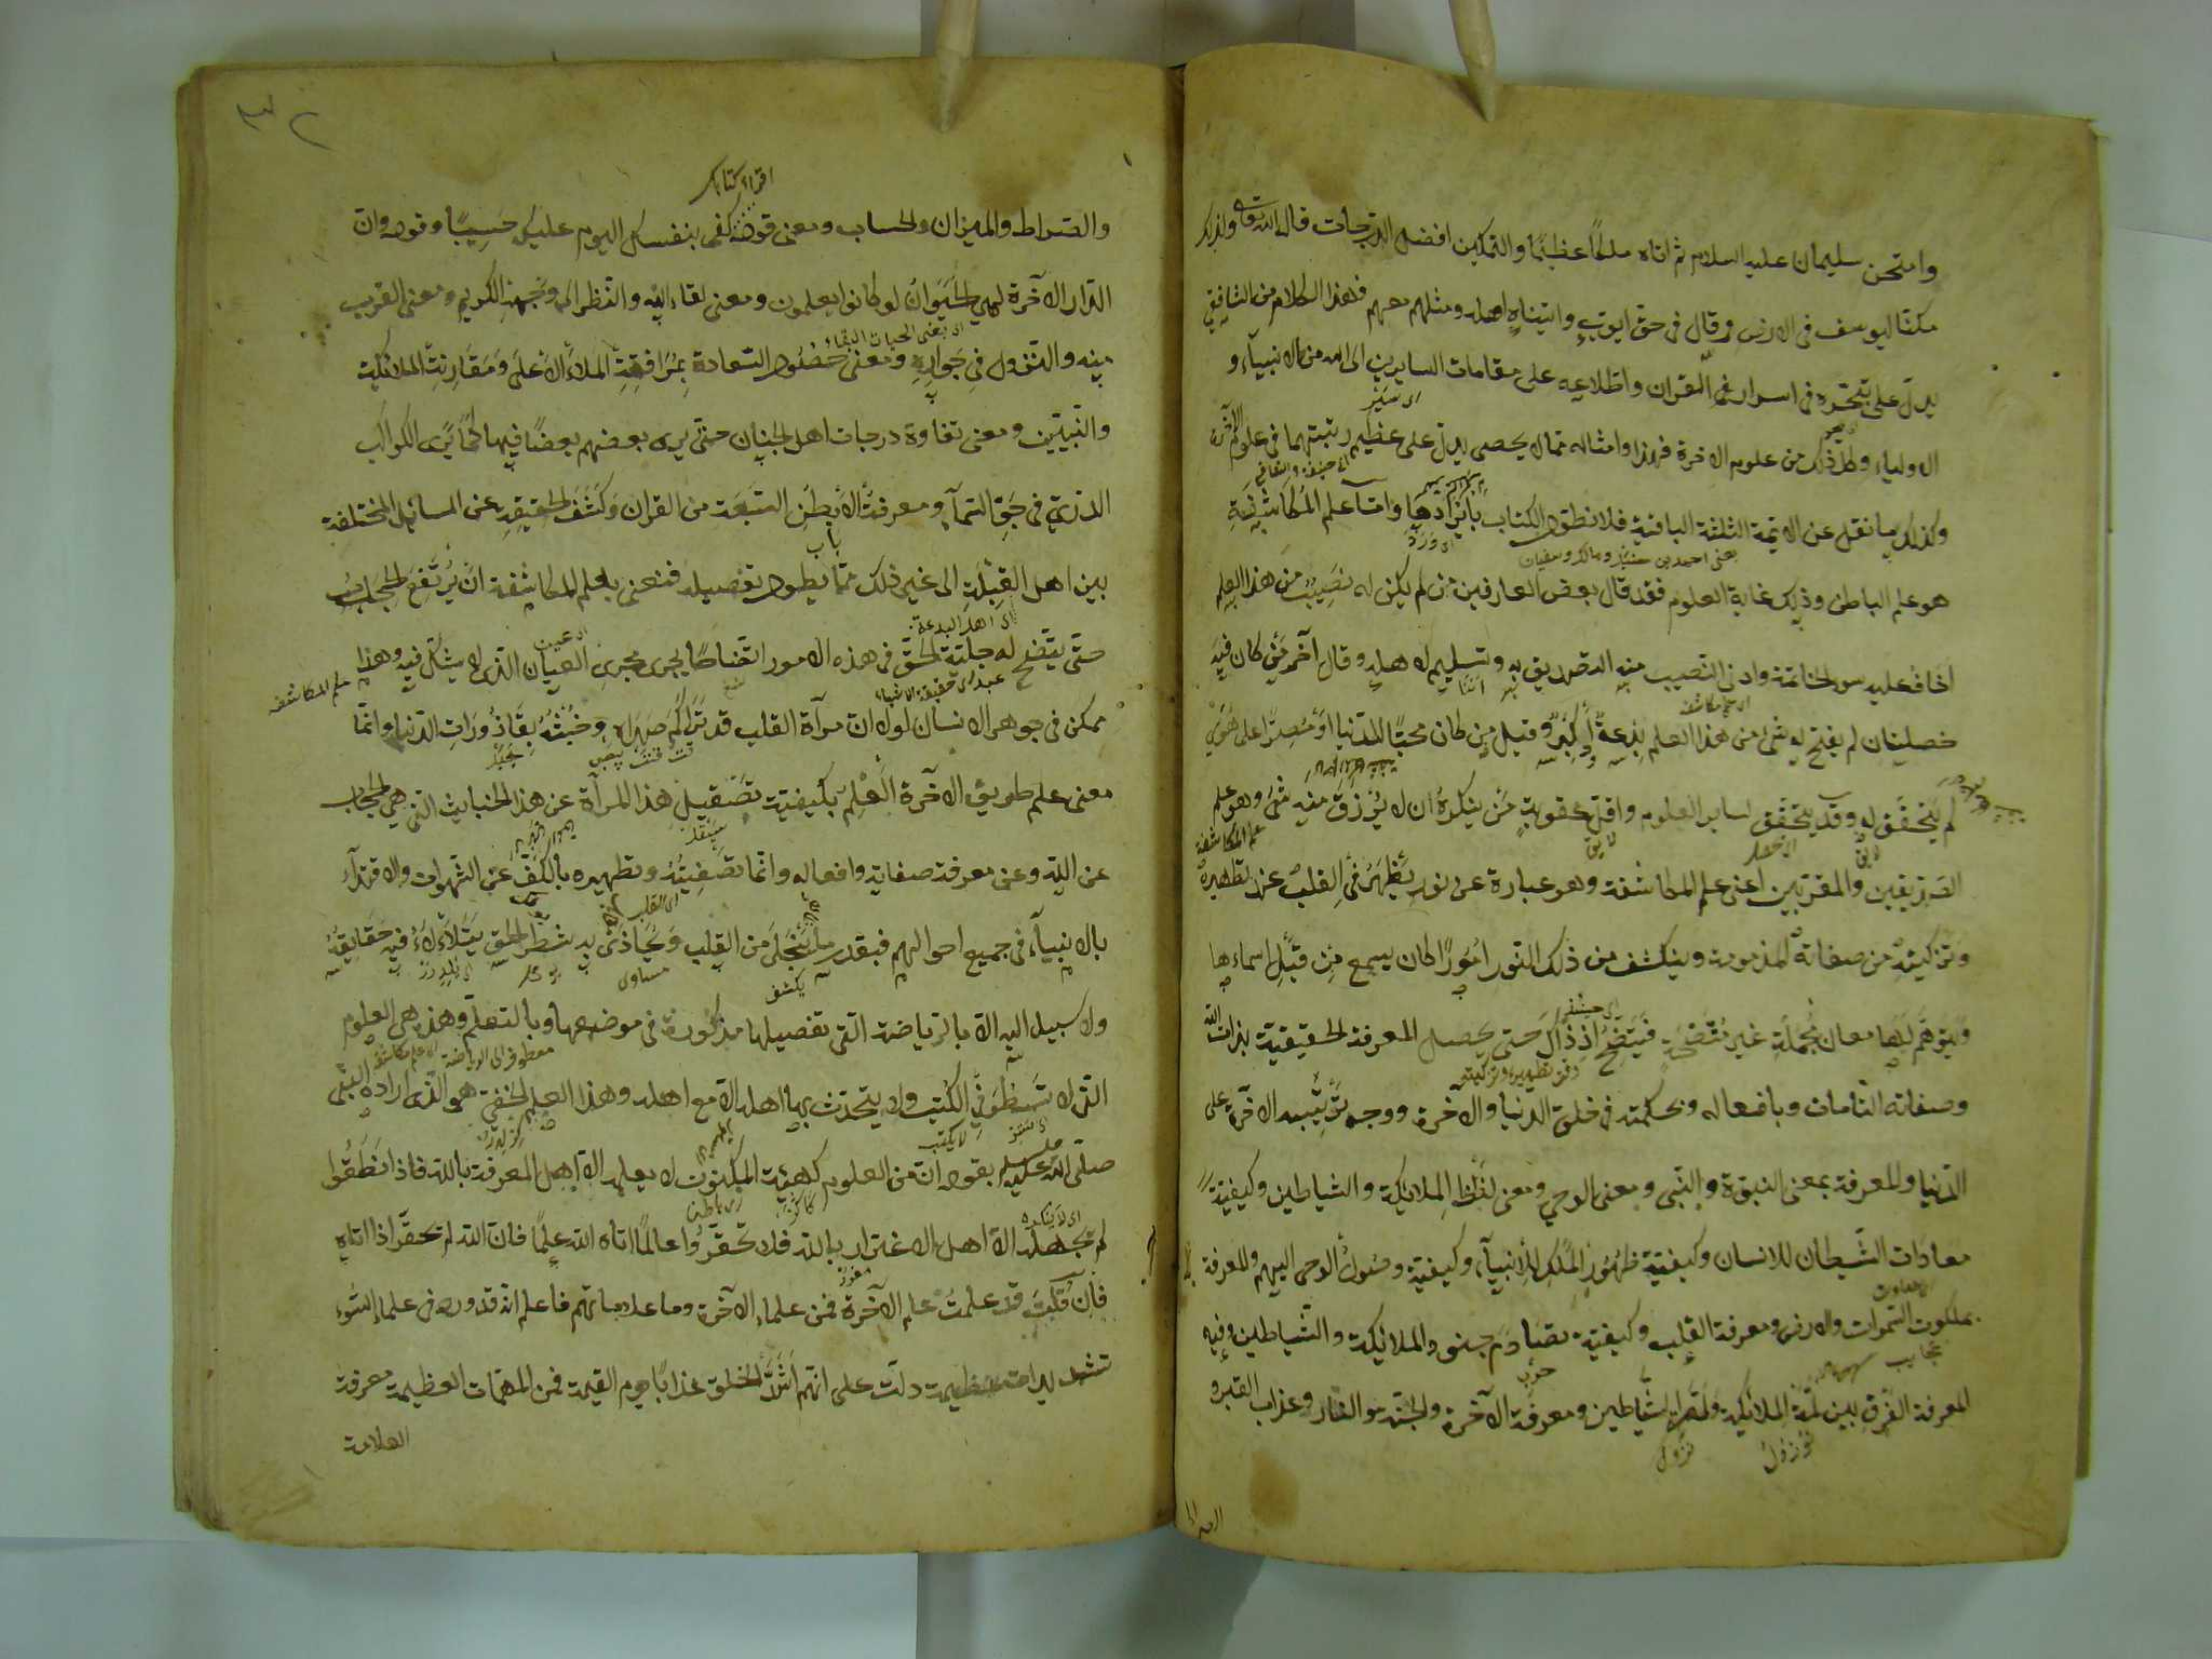 وامتحن سليمان عليه السلام ثم اتاه ملكًا عظيمًا والتمكين افضل الدرجات قال الله تعالى وكذلك
مكنّا ليوسف في الارض وقال في حق ايوب واتيناه اهله ومثلهم معهم فهذا الكلام من الشافعي
يدلّ على تبحّره في اسرار القران واطلاعه على مقامات السايرين الى الله من الانبياء و
الاولياء وكل ذلك من علوم الاخرة فهذا وامثاله مما لا يحصى يدلّ على عظيم رتبتهما في علوم الآخرة
وكذلك ما نقل عن الائمة الثلثة الباقية فلا نطول الكتاب بايرادها وامّا علم المكاشفة
يعنى احمد بن حنبل ومالك وسفيان
هو علم الباطن وذلك غاية العلوم فقد قال بعض العارفين من لم يكن له نصيب من هذا العلم
اخاف عليه سوء الخاتمة وادنى النصيب منه التصديق به وتسليمه لاهله وقال آخر من كان فيه
خصلتان لم يفتح له شئ من هذا العلم بدعة او كبر وقيل من كان محبًّا للدنيا او مصرًّا على هوى
لم يتحقق به وقد يتحقق لساير العلوم واقلّ عقوبة من ينكره ان لا يرزق منه شئ وهو علم
الصديقين والمقربين اعنى علم المكاشفة وهو عبارة عن نور يظهر في القلب عند تطهيره
وتزكيته من صفاته المذمومة وينكشف من ذلك النور امورًا كان يسمع من قبل اسماءها
ويتوهّم لها معان مجملة غير متضحة فيتضح اذ ذاك حتى يحصل المعرفة الحقيقية بذات الله
وصفاته التامات وبافعاله وبحكمته في خلق الدنيا والآخرة ووجه ترتيبه الآخرة على
الدنيا والمعرفة بمعنى النبوة والنبى ومعنى الوحي ومعنى لفظ الملائكة والشياطين وكيفية
معادات الشيطان للانسان وكيفية ظهور الملك للانبياء وكيفية وصول الوحى اليهم والمعرفة
بملكوت السموات والارض ومعرفة القلب وكيفية تصادم جنود الملائكة والشياطين وفيه
المعرفة الفرق بين لمّة الملائكة ولمّة الشياطين ومعرفة الآخرة والجنة والنار وعذاب القبر و
اقرا كتابك
والصراط والميزان والحساب ومعنى قوله كفى بنفسك اليوم عليك حسيبًا وقوله وان
الدار الآخرة لهي الحيوان لو كانوا يعلمون ومعنى لقاء الله والنظر الى وجهه الكريم ومعنى القرب
منه والنزول في جواره ومعنى حصول السعادة بمرافقة الملاء الاعلى ومقارنة الملائكة
والنبيين ومعنى تفاوة درجات اهل الجنان حتى يرى بعضهم بعضًا فيها كما يرى الكواكب
الدري في جو السماء ومعرفة الابطن السبعة من القران وكشف الحقيقة عن المسائل المختلفة
بين اهل القبلة الى غير ذلك مما يطول تفصيله فنعنى بعلم المكاشفة ان يرتفع الحجاب
اى اهل البدعة
حتى يتضح له جلية الحق في هذه الامور اتضاحًا يجرى مجرى العيان الذى لا يشك فيه وهذا
علم المكاشفه
ممكن في جوهر الانسان لولا ان مرآة القلب قد تراكم صداؤه وخبثه بقاذورات الدنيا وانما
معنى علم طريق الآخرة العلم بكيفية تصقيل هذا المرآة عن هذا الخبايث التى هي الحجاب
عن الله وعن معرفة صفاته وافعاله وانما تصفيته وتطهيره بالكف عن الشهوات والاقتداء
بالانبياء في جميع احوالهم فبقدر ما ينجلى من القلب ويحاذى به شطر الحق يتلالاء فيه حقايقه
ولا سبيل اليه الا بالرياضة التى تفصيلها مذكورة في موضعها وبالتعلم وهذه هى العلوم
التى لا تسطر في الكتب ولا يتحدث بها اهله الا مع اهله وهذا العلم الخفى هو الذى اراده النبى
صلى الله عليه وسلم بقوله ان من العلوم كهيئة المكنون لا يعلمه الا اهل المعرفة بالله فاذا نطقوا
لم يجهله الا اهل الاغترار بالله فلا تحقروا عالمًا اتاه الله علمًا فان الله لم تحقر اذا اتاه
فان قلت قد علمت علم الآخرة فمن علماء الآخرة وما علاماتهم فاعلم انه قد ورد في علماء السوء
تشديدات عظيمة دلت على انهم اشد الخلق عذابًا يوم القيمة فمن المهمات العظيمة معرفة
العلامة